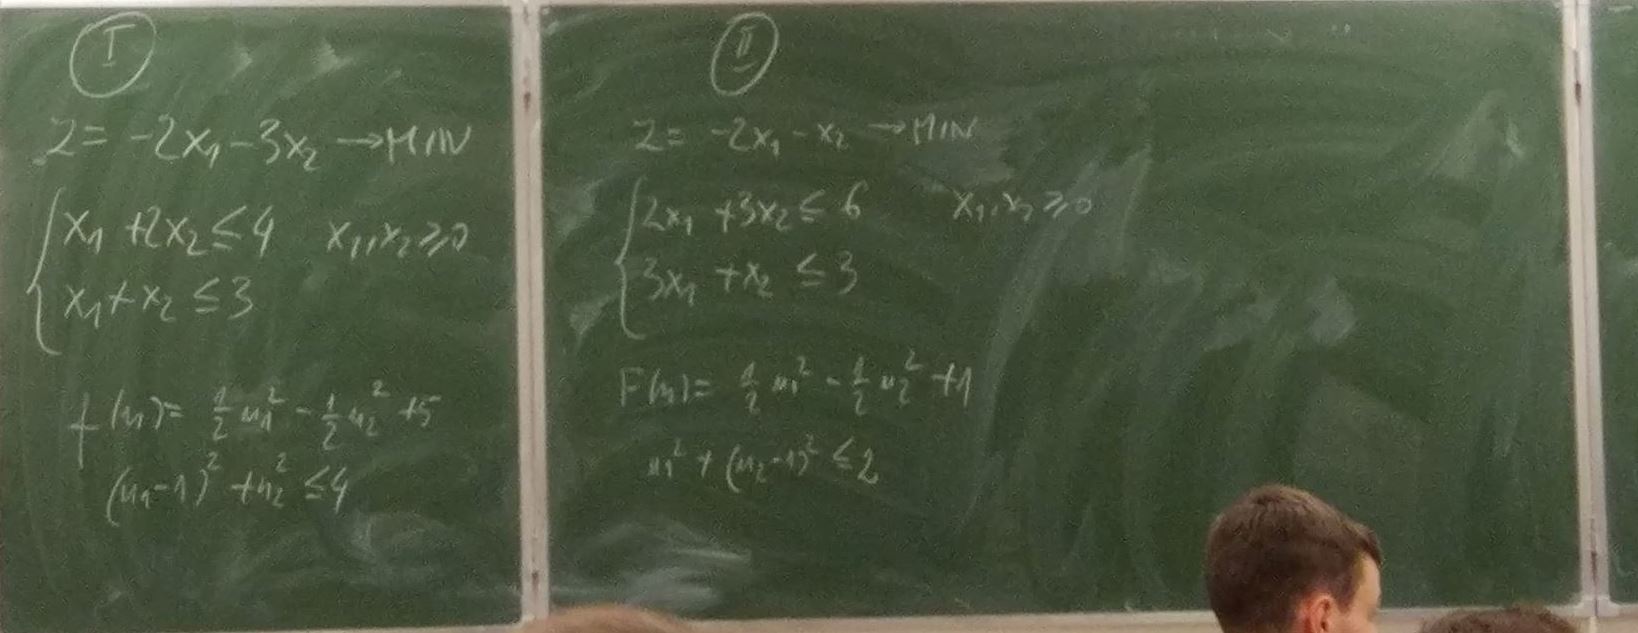 I
Z = -2x₁ - 3x₂ → MIN
x₁ + 2x₂ ≤ 4 x₁, x₂ ≥ 0
x₁ + x₂ ≤ 3
f(u) = ½u₁² - ½u₂² + 5
(u₁-1)² + u₂² ≤ 4
II
Z = -2x₁ - x₂ → MIN
2x₁ + 3x₂ ≤ 6 x₁, x₂ ≥ 0
3x₁ + x₂ ≤ 3
F(u) = ½u₁² - ½u₂² + 1
u₁² + (u₂-1)² ≤ 2